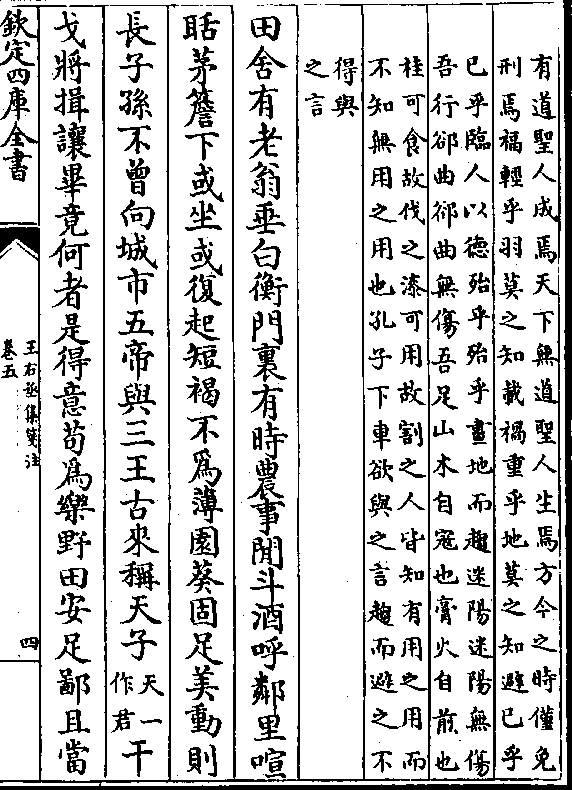 有道聖人成焉天下無道聖人生焉方今之時僅免
刑焉福輕乎羽莫之知載禍重乎地莫之知避已乎
已乎臨人以德殆乎殆乎畫地而趨迷陽迷陽無傷
吾行郤曲郤曲無傷吾足山木自寇也膏火自煎也
桂可食故伐之漆可用故割之人皆知有用之用而
不知無用之用也孔子下車欲與之言趨而避之不
得與
之言
田舍有老翁垂白衡門裏有時農事閒斗酒呼鄰里喧
聒茅簷下或坐或復起短褐不爲薄園葵固足美動則
長子孫不曾向城市五帝與三王古來稱天子天一作君干
戈將揖讓畢竟何者是得意苟爲樂野田安足鄙且當
欽定四庫全書
王右丞集箋注
卷五
四